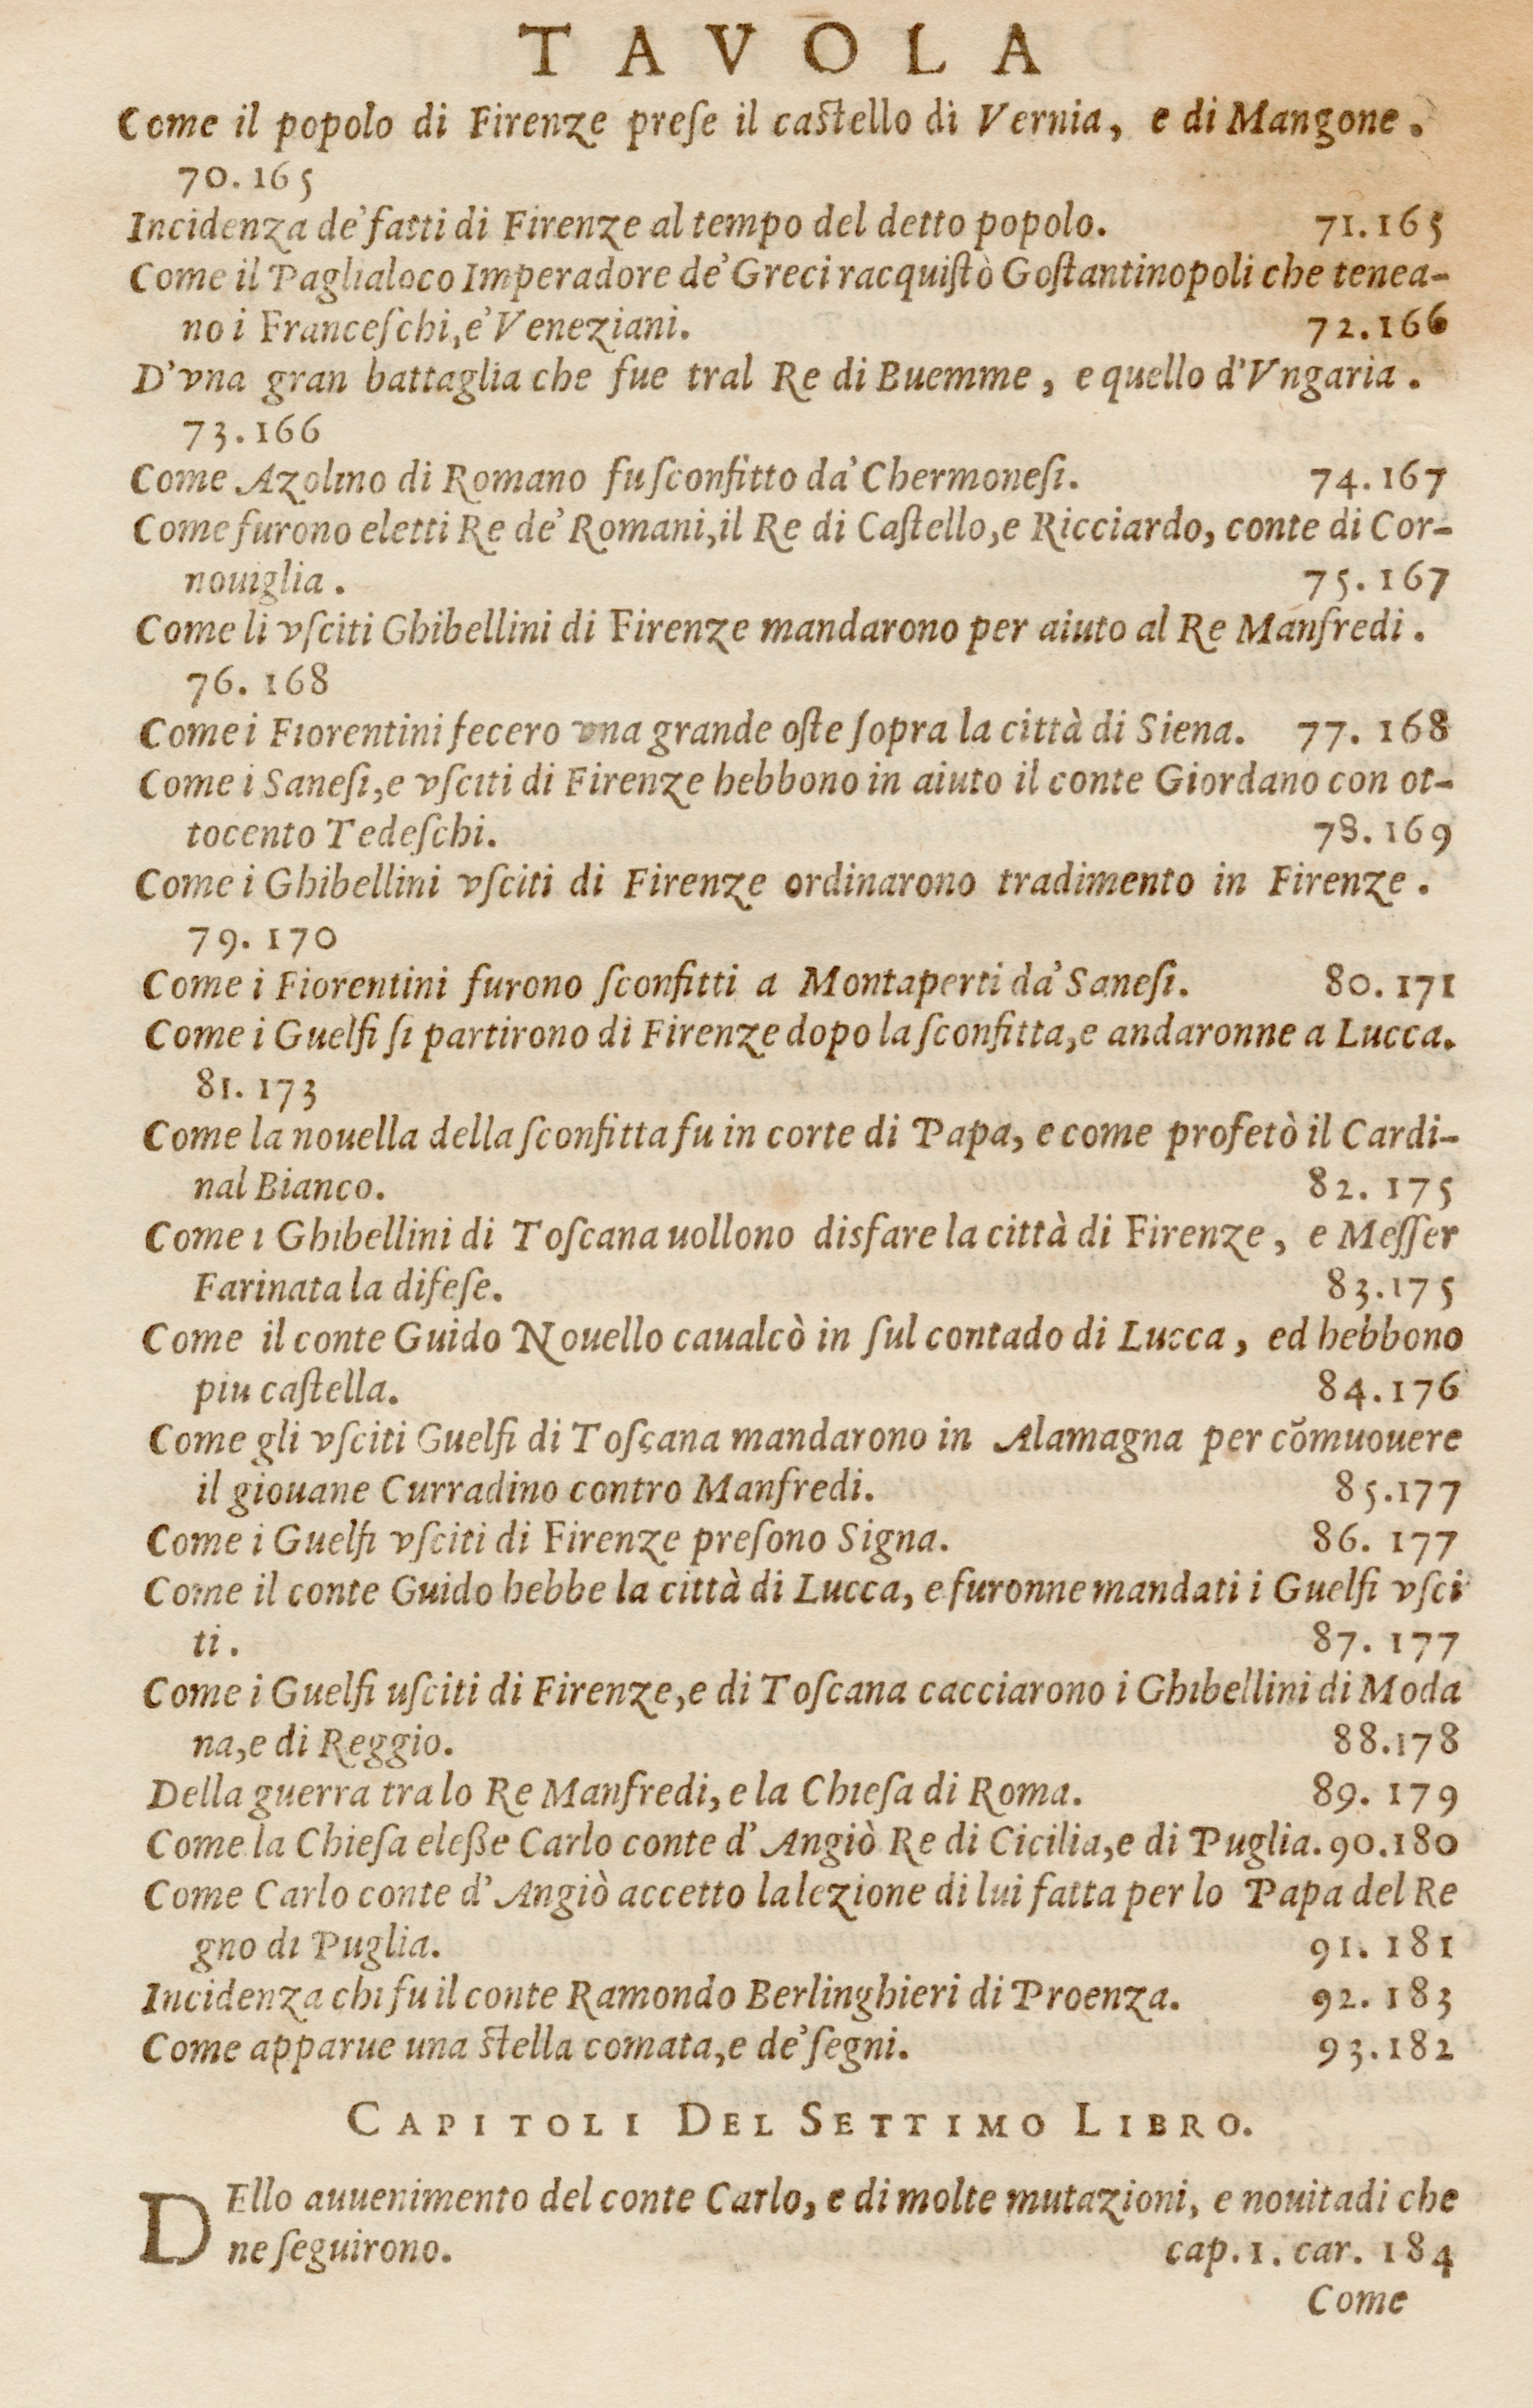 TAVOLA
Come il popolo di Firenze preſe il caſtello di Vernia, e di Mangone.
70.165
Incidenza de' fatti di Firenze al tempo del detto popolo. 71.165
Come il Paglialoco Imperadore de' Greci racquiſtò Goſtantinopoli che tenea-
no i Franceſchi, e' Veneziani. 72.166
D'vna gran battaglia che fue tral Re di Buemme, e quello d'Vngaria.
73.166
Come Azolino di Romano fu ſconfitto da' Chermoneſi. 74.167
Come furono eletti Re de' Romani, il Re di Caſtello, e Ricciardo, conte di Cor-
nouiglia. 75.167
Come li vſciti Ghibellini di Firenze mandarono per aiuto al Re Manfredi.
76.168
Come i Fiorentini fecero vna grande oſte ſopra la città di Siena. 77.168
Come i Saneſi, e vſciti di Firenze hebbono in aiuto il conte Giordano con ot-
tocento Tedeſchi. 78.169
Come i Ghibellini vſciti di Firenze ordinarono tradimento in Firenze.
79.170
Come i Fiorentini furono ſconfitti a Montaperti da' Saneſi. 80.171
Come i Guelfi ſi partirono di Firenze dopo la ſconfitta, e andaronne a Lucca.
81.173
Come la nouella della ſconfitta fu in corte di Papa, e come profetò il Cardi-
nal Bianco. 82.175
Come i Ghibellini di Toſcana uollono disfare la città di Firenze, e Meſſer
Farinata la difeſe. 83.175
Come il conte Guido Nouello caualcò in ſul contado di Lucca, ed hebbono
piu caſtella. 84.176
Come gli vſciti Guelfi di Toſcana mandarono in Alamagna per cõmuouere
il giouane Curradino contro Manfredi. 85.177
Come i Guelfi vſciti di Firenze preſono Signa. 86.177
Come il conte Guido hebbe la città di Lucca, e furonne mandati i Guelfi vſci
ti. 87.177
Come i Guelfi uſciti di Firenze, e di Toſcana cacciarono i Ghibellini di Moda
na, e di Reggio. 88.178
Della guerra tra lo Re Manfredi, e la Chieſa di Roma. 89.179
Come la Chieſa eleße Carlo conte d'Angiò Re di Cicilia, e di Puglia. 90.180
Come Carlo conte d'Angiò accetto lalezione di lui fatta per lo Papa del Re
gno di Puglia. 91.181
Incidenza chi fu il conte Ramondo Berlinghieri di Proenza. 92.183
Come apparue una ſtella comata, e de' ſegni. 93.182
CAPITOLI DEL SETTIMO LIBRO.
DEllo auuenimento del conte Carlo, e di molte mutazioni, e nouitadi che
ne ſeguirono. cap.1. car. 184
Come